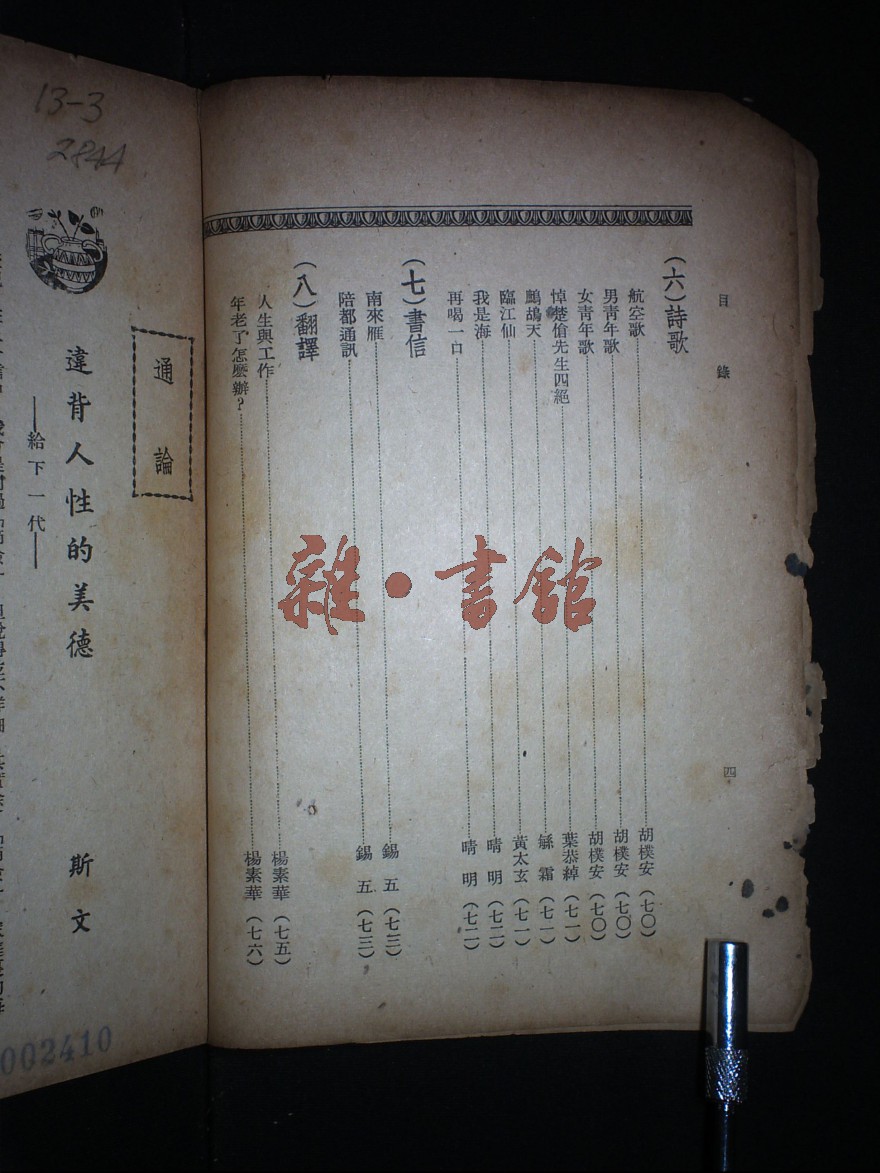 目錄
四
（六）詩歌
航空歌 胡樸安（七〇）
男靑年歌 胡樸安（七〇）
女靑年歌 胡樸安（七〇）
悼楚傖先生四絕 葉恭綽（七一）
鷓鴣天 黃太玄（七一）
臨江仙 霜（七一）
我是海 晴明（七二）
再喝一口 晴明（七二）
（七）書信
南來雁 錫五（七三）
陪都通訊 錫五（七三）
（八）翻譯
人生與工作 楊素華（七五）
年老了怎麽辦？ 楊素華（七六）
雜·書館
13-3
2844
通論
違背人性的美德
斯文
——給下一代——
002410